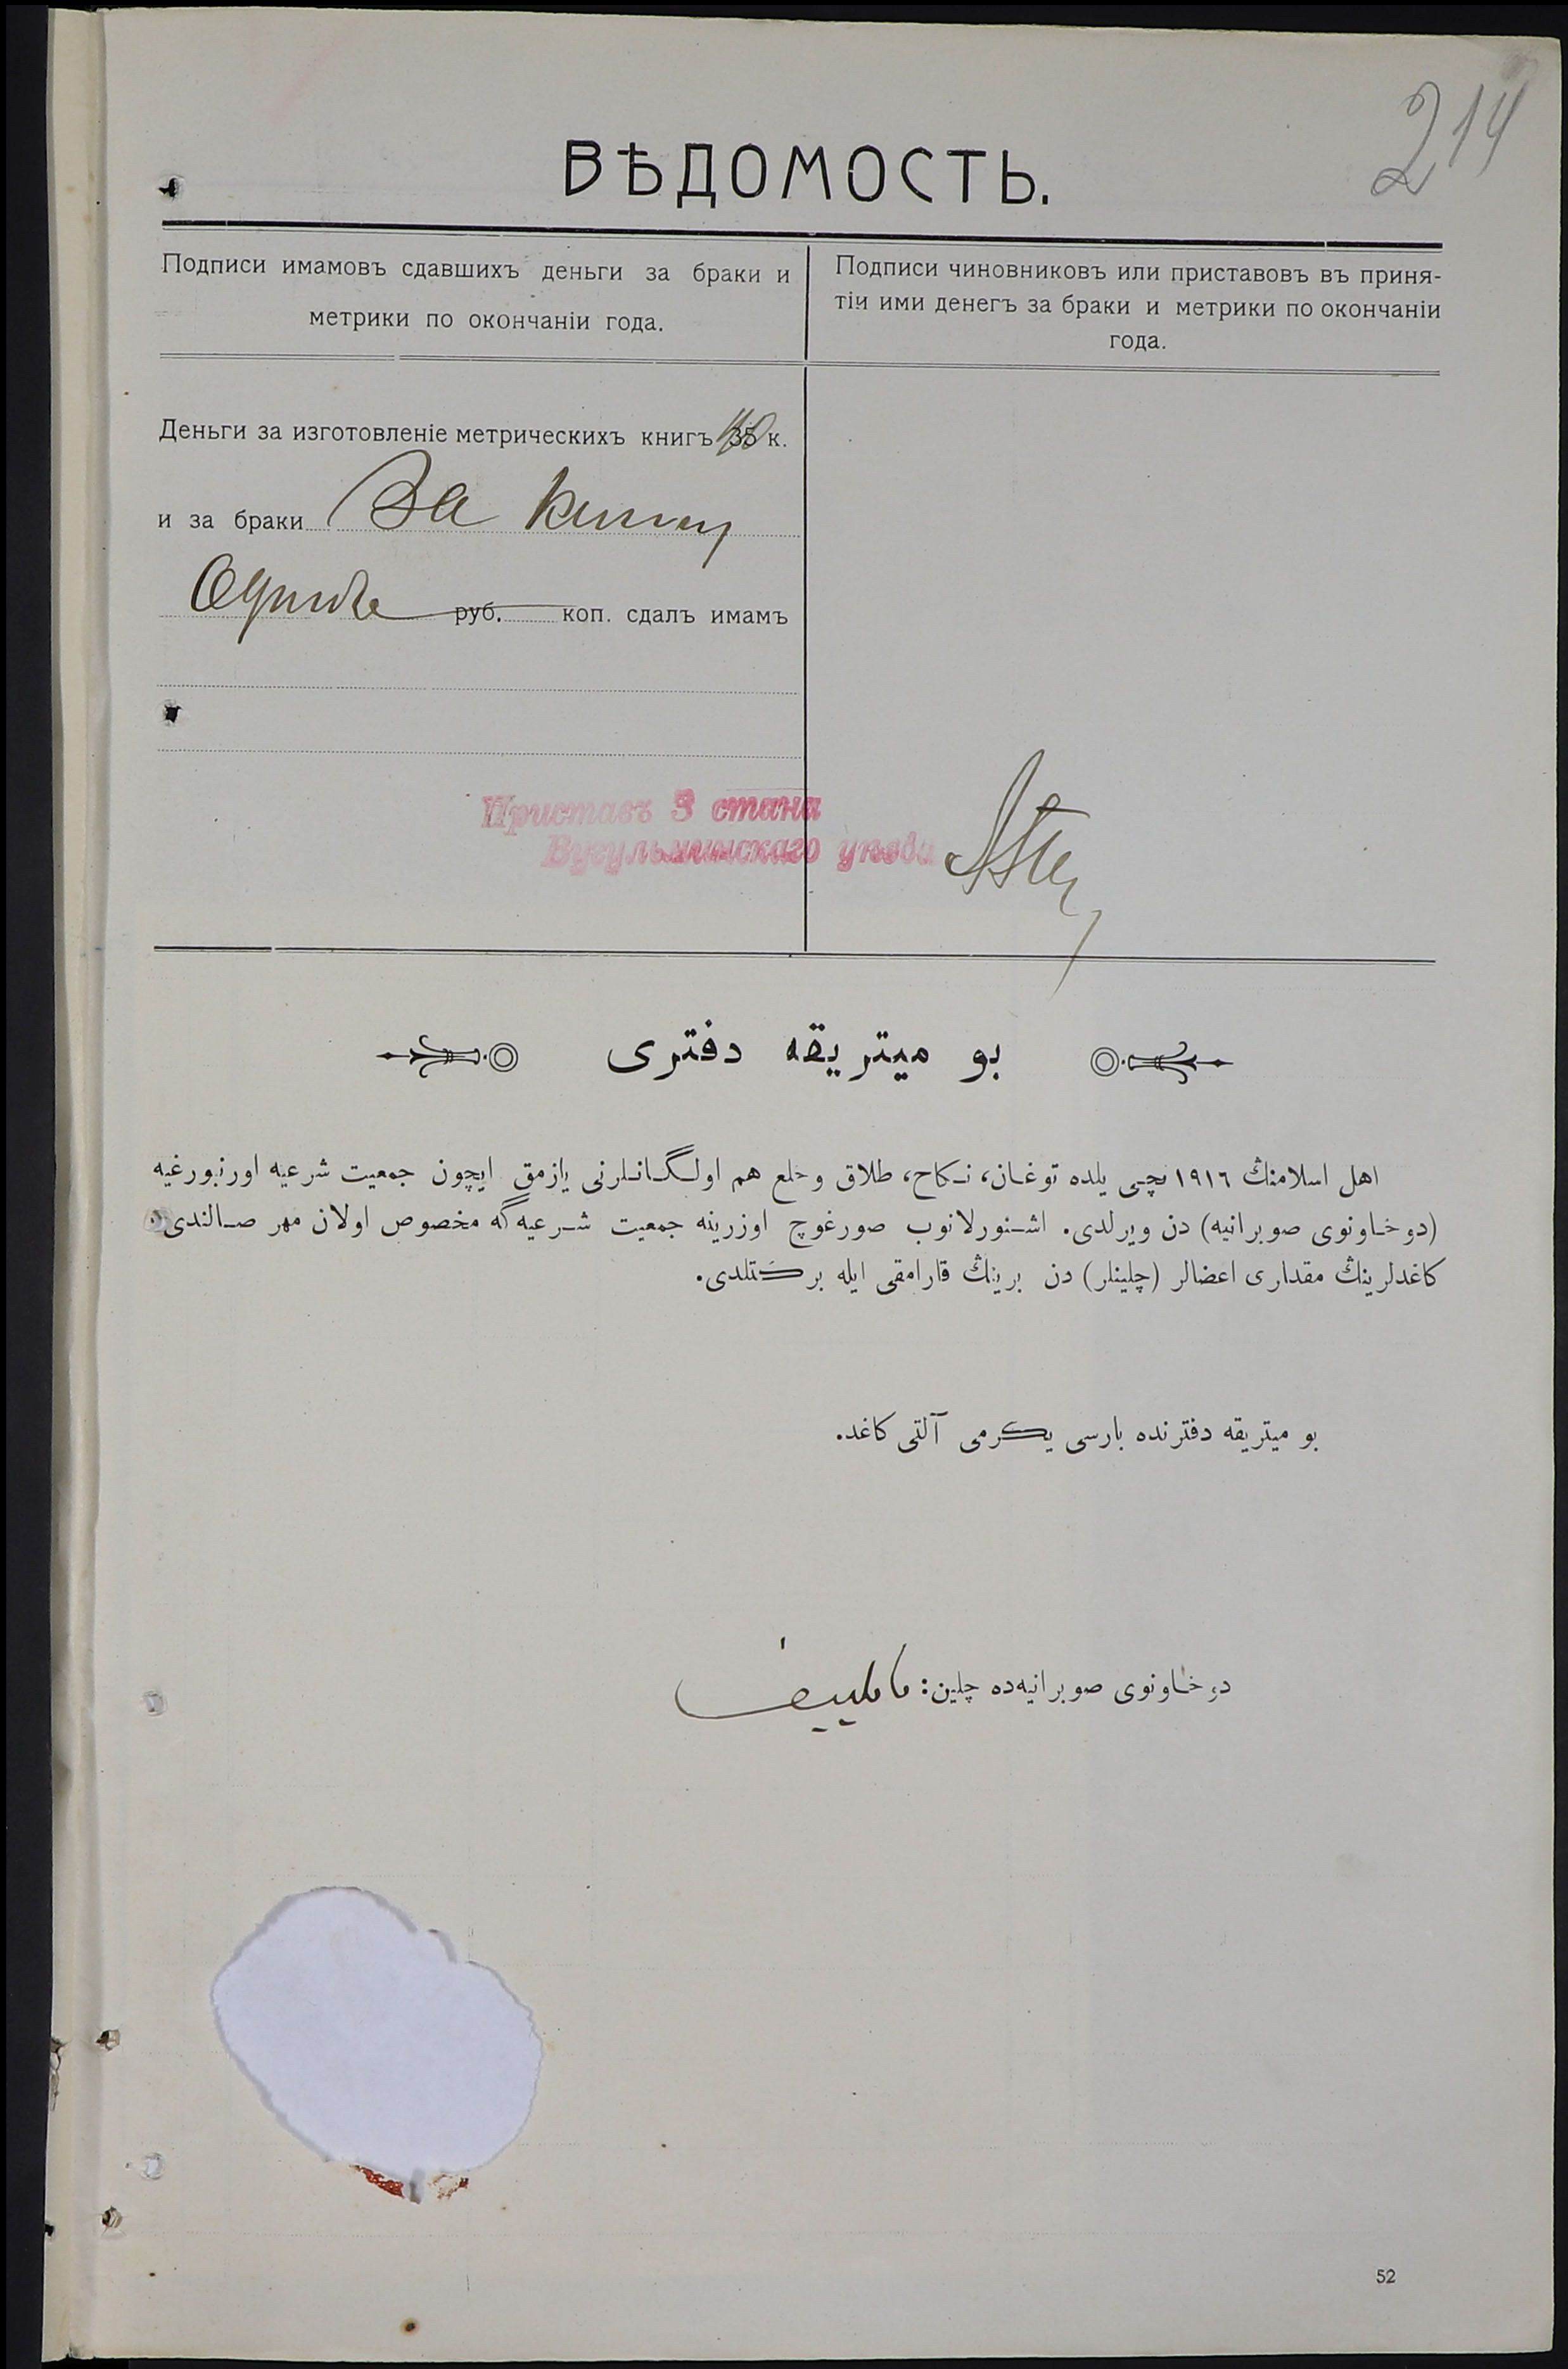 214
ВѢДОМОСТЬ.
Подписи имамовъ сдавшихъ деньги за браки и
метрики по окончаніи года.
Подписи чиновниковъ или приставовъ въ приня-
тіи ими денегъ за браки и метрики по окончаніи
года.
Деньги за изготовленіе метрическихъ книгъ 35 к.
и за браки За книгу
руб. коп. сдалъ имамъ
Приставъ 3 стана
Бугульминскаго уѣзда
بو میتریقه دفتری
اهل اسلامنڭ ١٩١٦ نچی یلده توغان، نكاح، طلاق وخلع هم اولـگـانـلرنی یازمق ایچون جمعیت شرعیه اورنبورغیه
(دوخاونوی صوبرانیه) دن ویرلدی. اشنورلانوب صورغوچ اوزرینه جمعیت شرعیه‌گه مخصوص اولان مهر صالندی
كاغدلرینڭ مقداری اعضالر (چلینلر) دن برینڭ قارامقی ایله بركَتلدی.
بو میتریقه دفترنده بارسی یكرمی آلتی كاغد.
دوخاونوی صوبرانیه‌ده چلین:
52